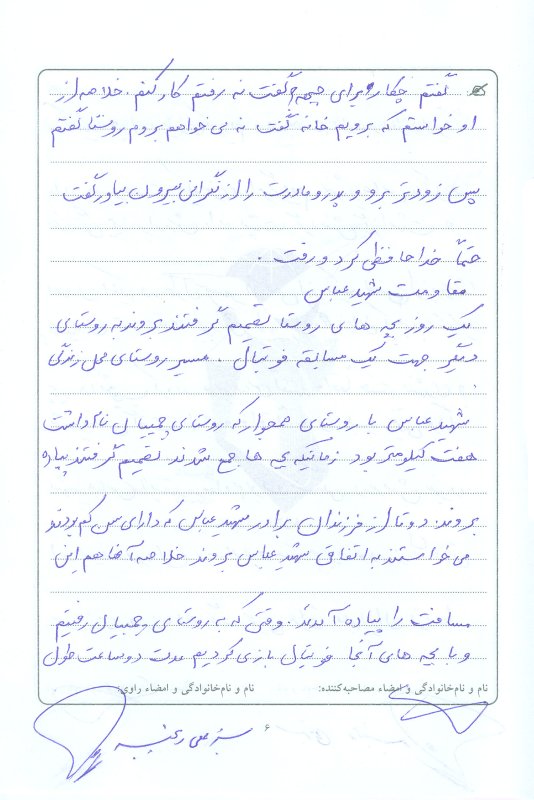 گفتم چکار برای جبهه گفت نه رفتم کار کنم. خلاصه از
او خواستم که برویم خانه گفت نه می خواهم بروم روستا گفتم
پس زودتر برو و پدر و مادرت را از نگرانی بیرون بیاور گفت
حتماً خداحافظی کرد و رفت.
مقاومت شهید عباس
یک روز بچه های روستا تصمیم گرفتند بروند به روستای
دیگر جهت یک مسابقه فوتبال. مسیر روستای محل زندگی
شهید عباس با روستای همجوار که روستای نام داشت
هفت کیلومتر بود زمانیکه بچه ها جمع شدند تصمیم گرفتند پیاده
بروند. دو تا از فرزندان برادر شهید عباس که دارای سن کم بودند
می خواستند به اتفاق شهید عباس بروند خلاصه آنها هم این
مسافت را پیاده آمدند. وقتی که به روستای رفتیم
و با بچه های آنجا فوتبال بازی کردیم مدت دو ساعت طول
نام و نام‌خانوادگی و امضاء مصاحبه‌کننده: نام و نام‌خانوادگی و امضاء راوی: